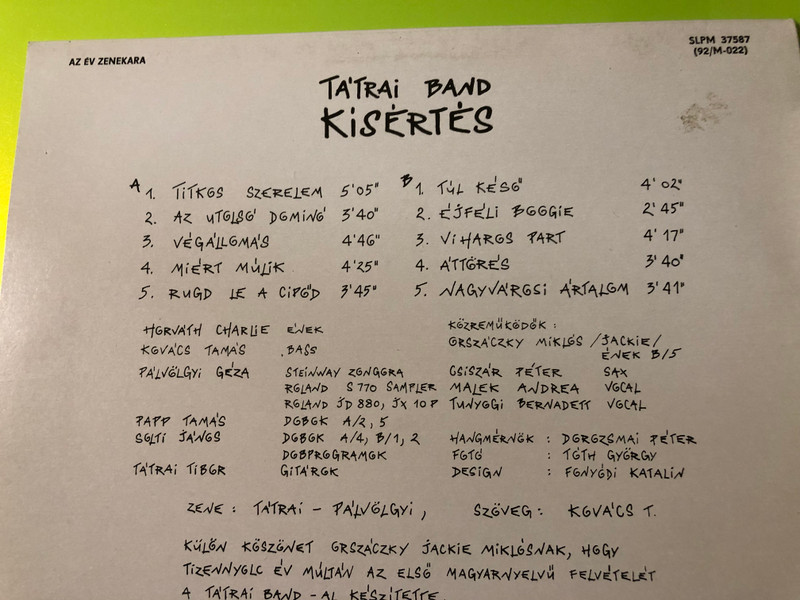 AZ ÉV ZENEKARA
SLPM 37587
(92/M-022)
TÁTRAI BAND
KISÉRTÉS
A 1. TITKOS SZERELEM 5'05"
2. AZ UTOLSÓ DOMINÓ 3'40"
3. VÉGÁLLOMÁS 4'46"
4. MIÉRT MÚLIK 4'25"
5. RUGD LE A CIPŐD 3'45"
B 1. TÚL KÉSŐ 4'02"
2. ÉJFÉLI BOOGIE 2'45"
3. VIHAROS PART 4'17"
4. ÁTTÖRÉS 3'40"
5. NAGYVÁROSI ÁRTALOM 3'41"
HORVÁTH CHARLIE ÉNEK
KOVÁCS TAMÁS .BASS
PÁLVÖLGYI GÉZA STEINWAY ZONGORA
ROLAND S770 SAMPLER
ROLAND JD 880, JX 10P
PAPP TAMÁS DOBOK A/2, 5
SOLTI JÁNOS DOBOK A/4, B/1, 2
DOBPROGRAMOK
TÁTRAI TIBOR GITÁROK
KÖZREMŰKÖDŐK :
ORSZÁCZKY MIKLÓS /JACKIE/
ÉNEK B/5
CSISZÁR PÉTER SAX
MALEK ANDREA VOCAL
TUNYOGI BERNADETT VOCAL
HANGMÉRNÖK : DOROZSMAI PÉTER
FOTÓ : TÓTH GYÖRGY
DESIGN : FONYÓDI KATALIN
ZENE : TÁTRAI - PÁLVÖLGYI, SZÖVEG : KOVÁCS T.
KÜLÖN KÖSZÖNET ORSZÁCZKY JACKIE MIKLÓSNAK, HOGY
TIZENNYOLC ÉV MÚLTÁN AZ ELSŐ MAGYARNYELVŰ FELVÉTELÉT
A TÁTRAI BAND-AL KÉSZÍTETTE.